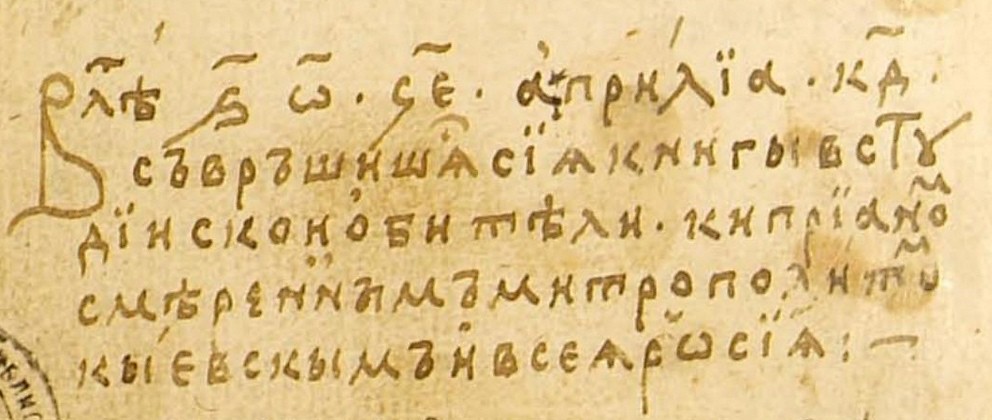 В лѣ҃ ҂ѕ҃ ѡ҃ · ч҃е · а҆прилїа · к҃д ·
съвръшишѧ сїѧ книгы в сту
дїискои ѻбители · кипрїаноⷨ
смѣреннымъ митрополитоⷨ
кыевскымъ и всеѧ рѡсїѧ : —